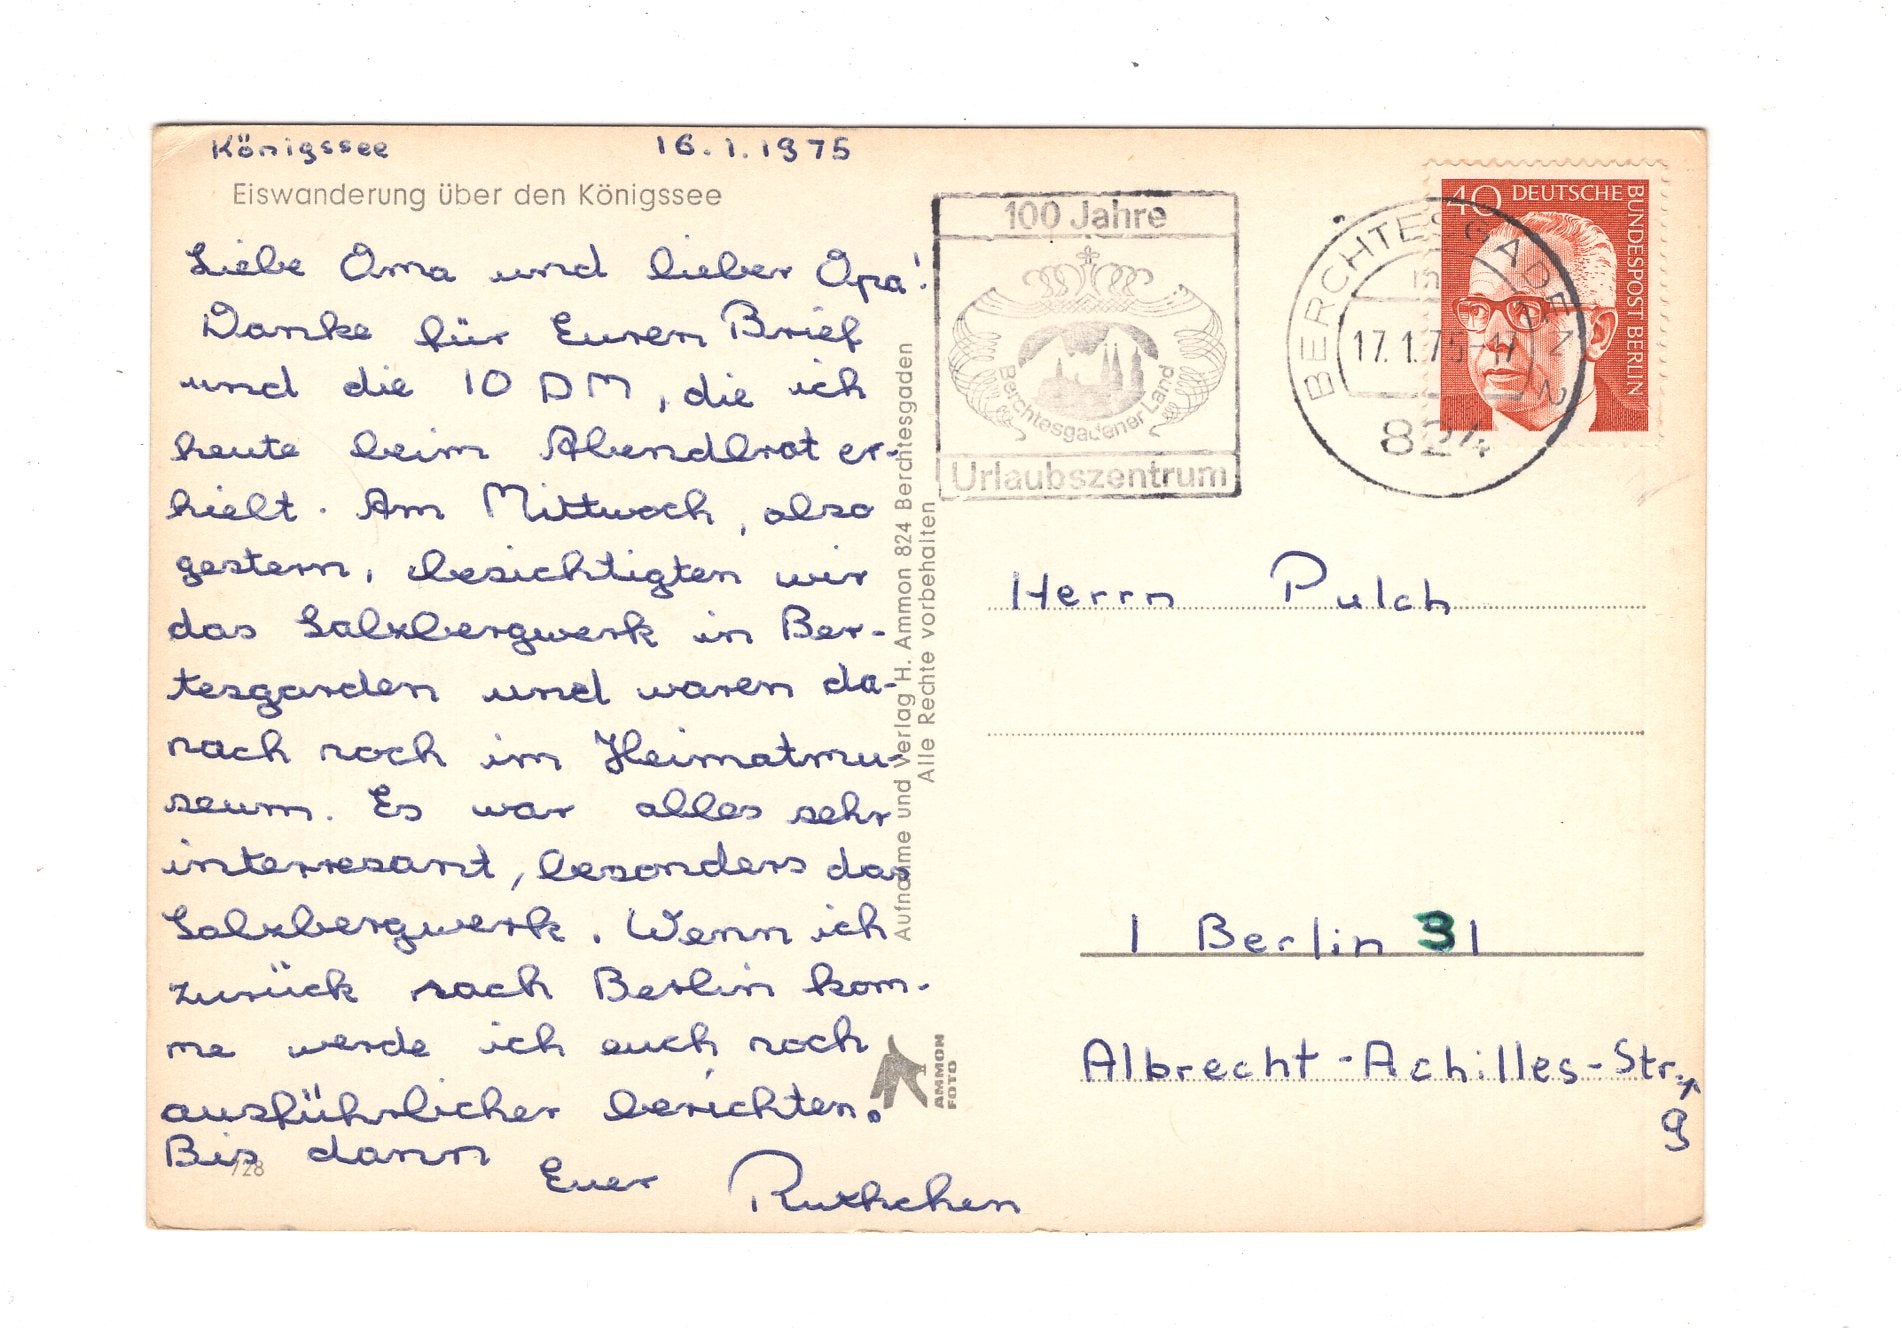 Königssee 16.1.1975
Eiswanderung über den Königssee
Liebe Oma und lieber Opa!
Danke für Euren Brief
und die 10 DM, die ich
heute beim Abendbrot er-
hielt. Am Mittwoch, also
gestern, besichtigten wir
das Salzbergwerk in Ber-
tesgarden und waren da-
nach noch im Heimatmu-
seum. Es war alles sehr
interresant, besonders das
Salzbergwerk. Wenn ich
zurück nach Berlin kom-
me werde ich euch noch
ausführlicher berichten.
Bis dann
Euer Ruthchen
/28
Aufnahme und Verlag H. Ammon 824 Berchtesgaden
Alle Rechte vorbehalten
AMMON
FOTO
100 Jahre
Berchtesgadener Land
Urlaubszentrum
BERCHTESGADEN 2
17.1.75-17
824
40 DEUTSCHE BUNDESPOST BERLIN
Herrn Pulch
1 Berlin 31
Albrecht-Achilles-Str.
9